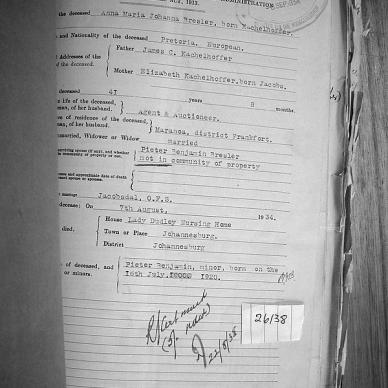 ACT, 1913.
ADMINISTRATION
SEP 1934
the deceased Anna Maria Johanna Bresler, born Kachelhoffer.
and Nationality of the deceased Pretoria. European.
Addresses of the
of the deceased.
Father James C. Kachelhoffer
Mother Elizabeth Kachelhoffer, born Jacobs.
deceased 41 years 8 months.
life of the deceased,
man, of her husband.
Agent & Auctioneer.
of residence of the deceased,
man, of her husband.
Maranoa, district Frankfort.
married, Widower or Widow Married
surviving spouse (if any), and whether
in community of property or not.
Pieter Benjamin Bresler
not in community of property
name and approximate date of death
marriage Jacobsdal, O.F.S.
decease; On 7th August, 1934.
died,
House Lady Dudley Nursing Home
Town or Place Johannesburg.
District Johannesburg
of deceased, and
or minors.
Pieter Benjamin, minor, born on the
16th July. 1920.
26/38
22/8/38